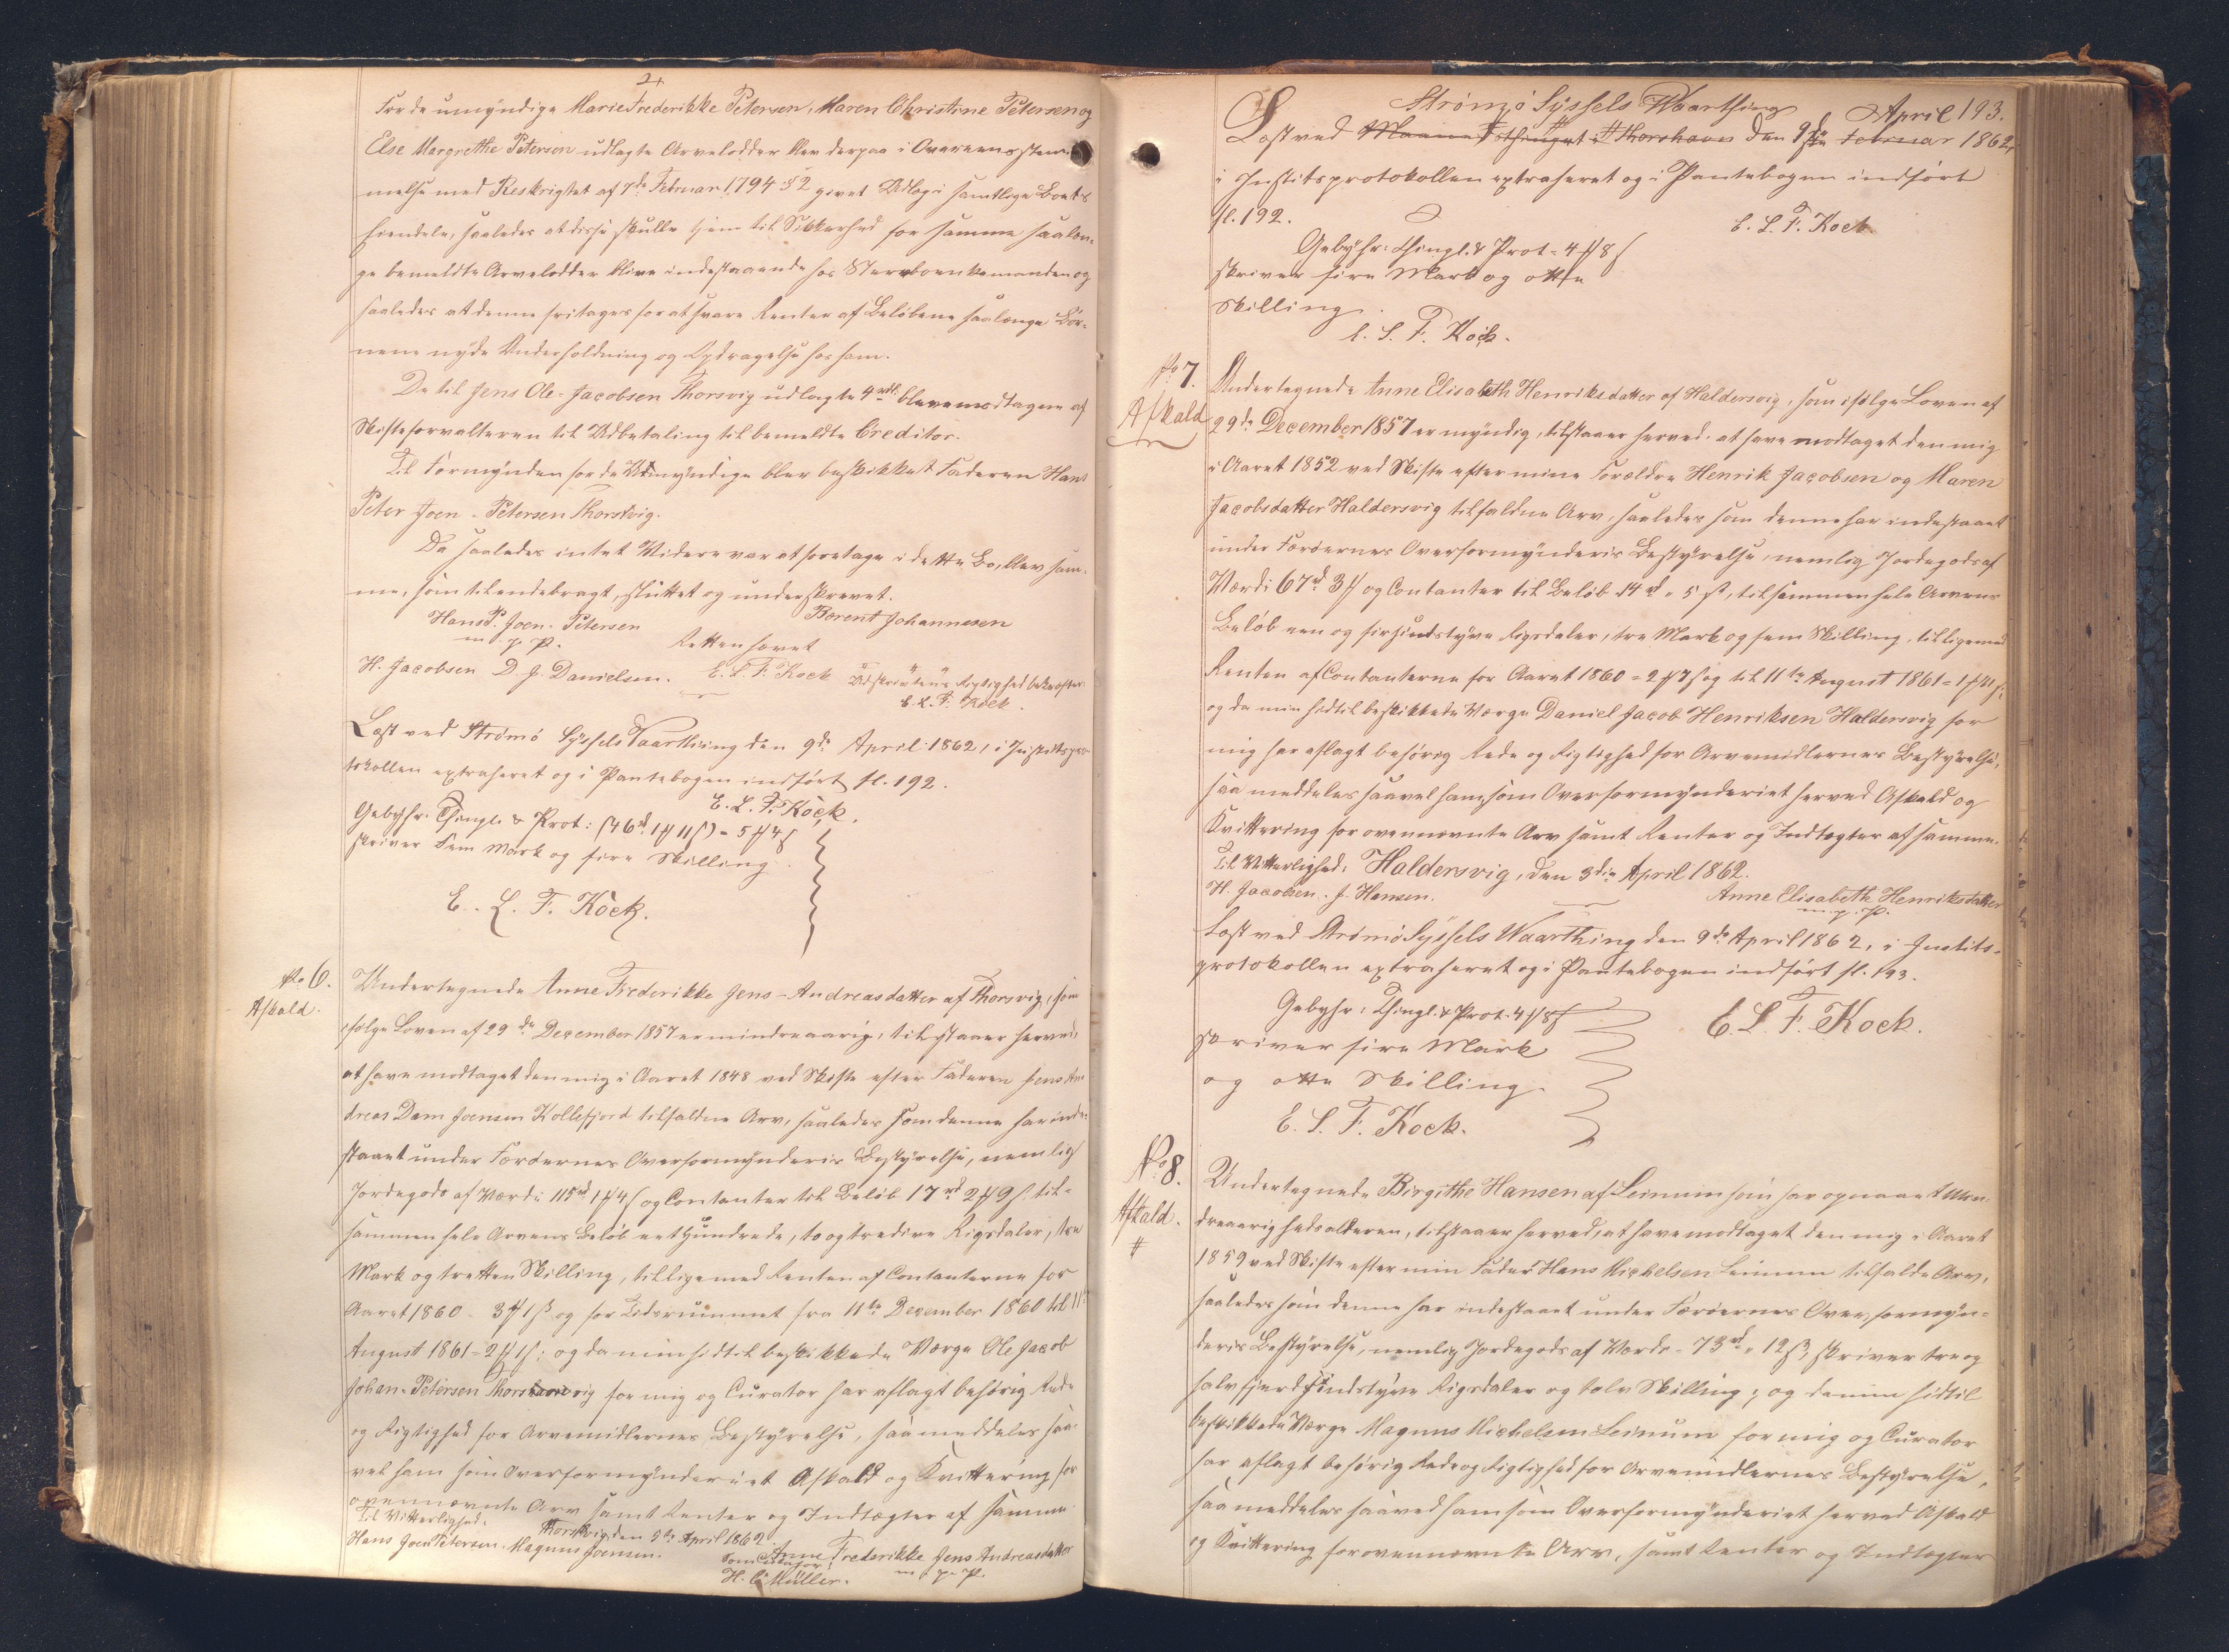 For de umyndige Marie Frederikke Petersen, Maren Christine Petersen og
Else Margrethe Petersen udlagte Arvelodder blev derpaa i Overeensstem-
melse med Reskriptet af 7de Februar 1794 § 2 givet Udlæg i samtlige Boets
Eiendele, saaledes at disse skulle tjene til Sikkerhed for samme saalæn-
ge bemeldte Arvelodder blive indestaaende hos Stervboenkemanden og
saaledes at denne fritages for at svare Renter af Beløbene saalænge Bør-
nene nyde Underholdning og Opdragelse hos ham.
De til Jens Ole Jacobsen Thorsvig udlagte 4 rdl. bleve modtagne af
Skifteforvalteren til Udbetaling til bemeldte Creditor.
Til Formynder for de Umyndige blev beskikket Faderen Hans
Peter Joen-Petersen Thorsvig.
Da saaledes intet Videre var at foretage i dette Bo, blev sam-
me, som tilendebragt, sluttet og underskrevet.
Hans P. Joen-Petersen
m. p. P.
Berent Johannesen
Retten hævet
H. Jacobsen D. J. Danielsen. E. L. F. Kock Udskriftens Rigtighed bekræfter
E. L. F. Kock.
Læst ved Strømø Syssels Vaarthing den 9de April 1862, i Justitspro-
tokollen extraheret og i Pantebogen indført fl. 192.
E. L. F. Kock.
Gebyhr: Thingl. & Prot: (46 rd 1 # 11 ß) = 5 # 4 ß
skriver Fem Mark og fire Skilling.
E. L. F. Kock.
No 6.
Afkald.
Undertegnede Anne Frederikke Jens-Andreasdatter af Thorsvig, som
ifølge Loven af 29de December 1857 er mindreaarig, tilstaaer herved,
at have modtaget den mig i Aaret 1848 ved Skifte efter Faderen Jens An-
dreas Dam Joensen Kollefjord tilfaldne Arv, saaledes som denne har inde-
staaet under Færøernes Overformynderis Bestyrelse, nemlig
Jordegods af Værdi 115 rd 1 # 4 ß og Contanter til Beløb 17 rd 2 # 9 ß. til-
sammen hele Arvens Beløb eet Hundrede, to og tredive Rigsdaler, tre
Mark og tretten Skilling, tilligemed Renten af Contanterne for
Aaret 1860 - 3 # 1 ß og for Tidsrummet fra 11te December 1860 til 11te
August 1861 = 2 # 1 ß; og da min hidtil beskikkede Værge Ole Jacob
Johan-Petersen Thorsvig for mig og Curator har aflagt behørig Rede
og Rigtighed for Arvemidlernes Bestyrelse, saa meddeles saa-
vel ham som Overformynderiet Afkald og Kvittering for
ovennævnte Arv samt Renter og Indtægter af samme.
Til Vitterlighed: Thorsvig, den 5te April 1862.
Hans Joen Petersen. Magnus Joensen. Anne Frederikke Jens Andreasdatter
Som Curator: m. p. P.
H. C. Müller.
Strømø Syssels Vaarthing April 193.
Læst ved Maanedsthinget i Thorshavn den 9de Februar 1862,
i Justitsprotokollen extraheret og i Pantebogen indført
fl. 192.
E. L. F. Kock.
Gebyhr: Thingl. & Prot = 4 # 8 ß
skriver fire Mark og otte
Skilling.
E. L. F. Kock.
No 7.
Afkald
Undertegnede Anne Elisabeth Henriksdatter af Haldersvig, som ifølge Loven af
29de December 1857 er myndig, tilstaaer herved, at have modtaget den mig
i Aaret 1852 ved Skifte efter mine Forældre Henrik Jacobsen og Maren
Jacobsdatter Haldersvig tilfaldne Arv, saaledes som denne har indestaaet
under Færøernes Overformynderis Bestyrelse, nemlig Jordegods af
Værdi 67 rd 3 # og Contanter til Beløb 14 rd " 5 ß, tilsammen hele Arvens
Beløb een og firsindstyve Rigsdaler, tre Mark og fem Skilling, tilligemed
Renten af Contanterne for Aaret 1860 = 2 # 7 ß og til 11te August 1861 = 1 # 11 ß;
og da min hidtil beskikkede Værge Daniel Jacob Henriksen Haldersvig for
mig har aflagt behørig Rede og Rigtighed for Arvemidlernes Bestyrelse,
saa meddeles saavel ham som Overformynderiet herved Afkald og
Kvittering for ovennævnte Arv samt Renter og Indtægter af samme.
Til Vitterlighed: Haldersvig, den 3die April 1862.
H. Jacobsen. J. Hansen. Anne Elisabeth Henriksdatter
m. p. P.
Læst ved Strømø Syssels Vaarthing den 9de April 1862, i Justits-
protokollen extraheret og i Pantebogen indført fl. 193.
Gebyhr: Thingl. & Prot. 4 # 8 ß
E. L. F. Kock.
skriver fire Mark
og otte Skilling.
E. L. F. Kock.
No 8.
Afkald.
#
Undertegnede Birgithe Hansen af Leinum som har opnaaet Min-
dreaarighedsalderen, tilstaaer herved, at have modtaget den mig i Aaret
1859 ved Skifte efter min Fader Hans Michelsen Leinum tilfaldne Arv,
saaledes som denne har indestaaet under Færøernes Overformyn-
deris Bestyrelse, nemlig Jordegods af Værdi - 73 rd " 12 ß, skriver tre og
halvfjerdsindstyve Rigsdaler og tolv Skilling; og da min hidtil
beskikkede Værge Magnus Michelsen Leinum for mig og Curator
har aflagt behørig Rede og Rigtighed for Arvemidlernes Bestyrelse,
saa meddeles saavel ham som Overformynderiet herved Afkald
og Kvittering for ovennævnte Arv, samt Renter og Indtægter